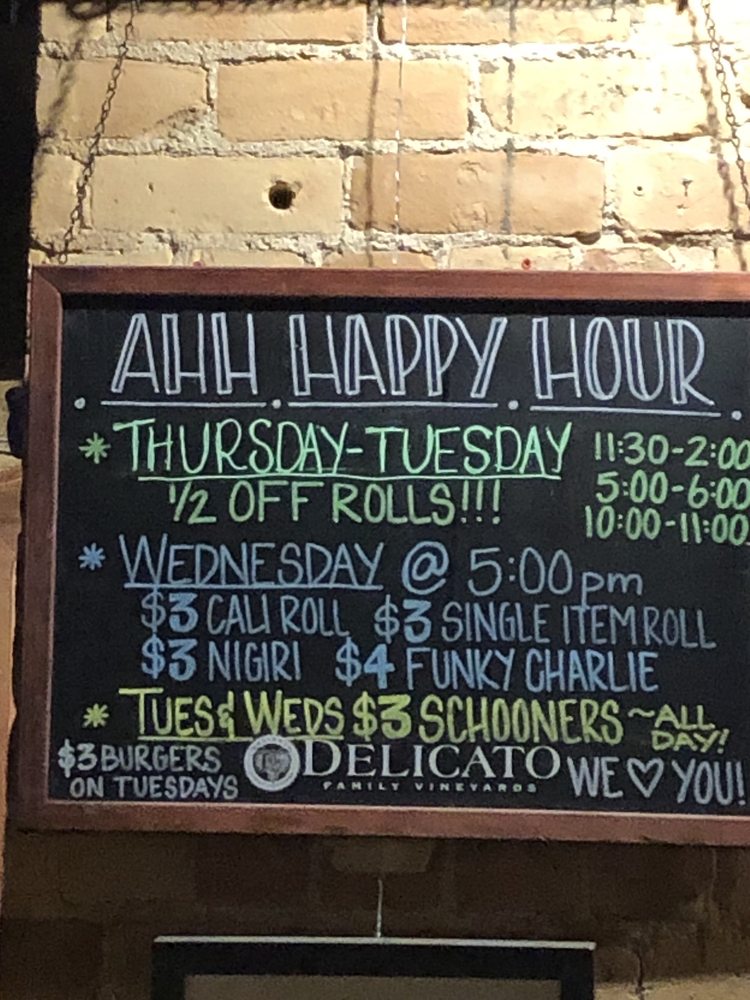 AHH HAPPY HOUR
* THURSDAY-TUESDAY 11:30-2:00
1/2 OFF ROLLS!!! 5:00-6:00
10:00-11:00
* WEDNESDAY @ 5:00pm
$3 CALI ROLL $3 SINGLE ITEM ROLL
$3 NIGIRI $4 FUNKY CHARLIE
* TUES & WEDS $3 SCHOONERS ~ALL DAY!
$3 BURGERS ON TUESDAYS
DELICATO
FAMILY VINEYARDS
WE ♡ YOU!